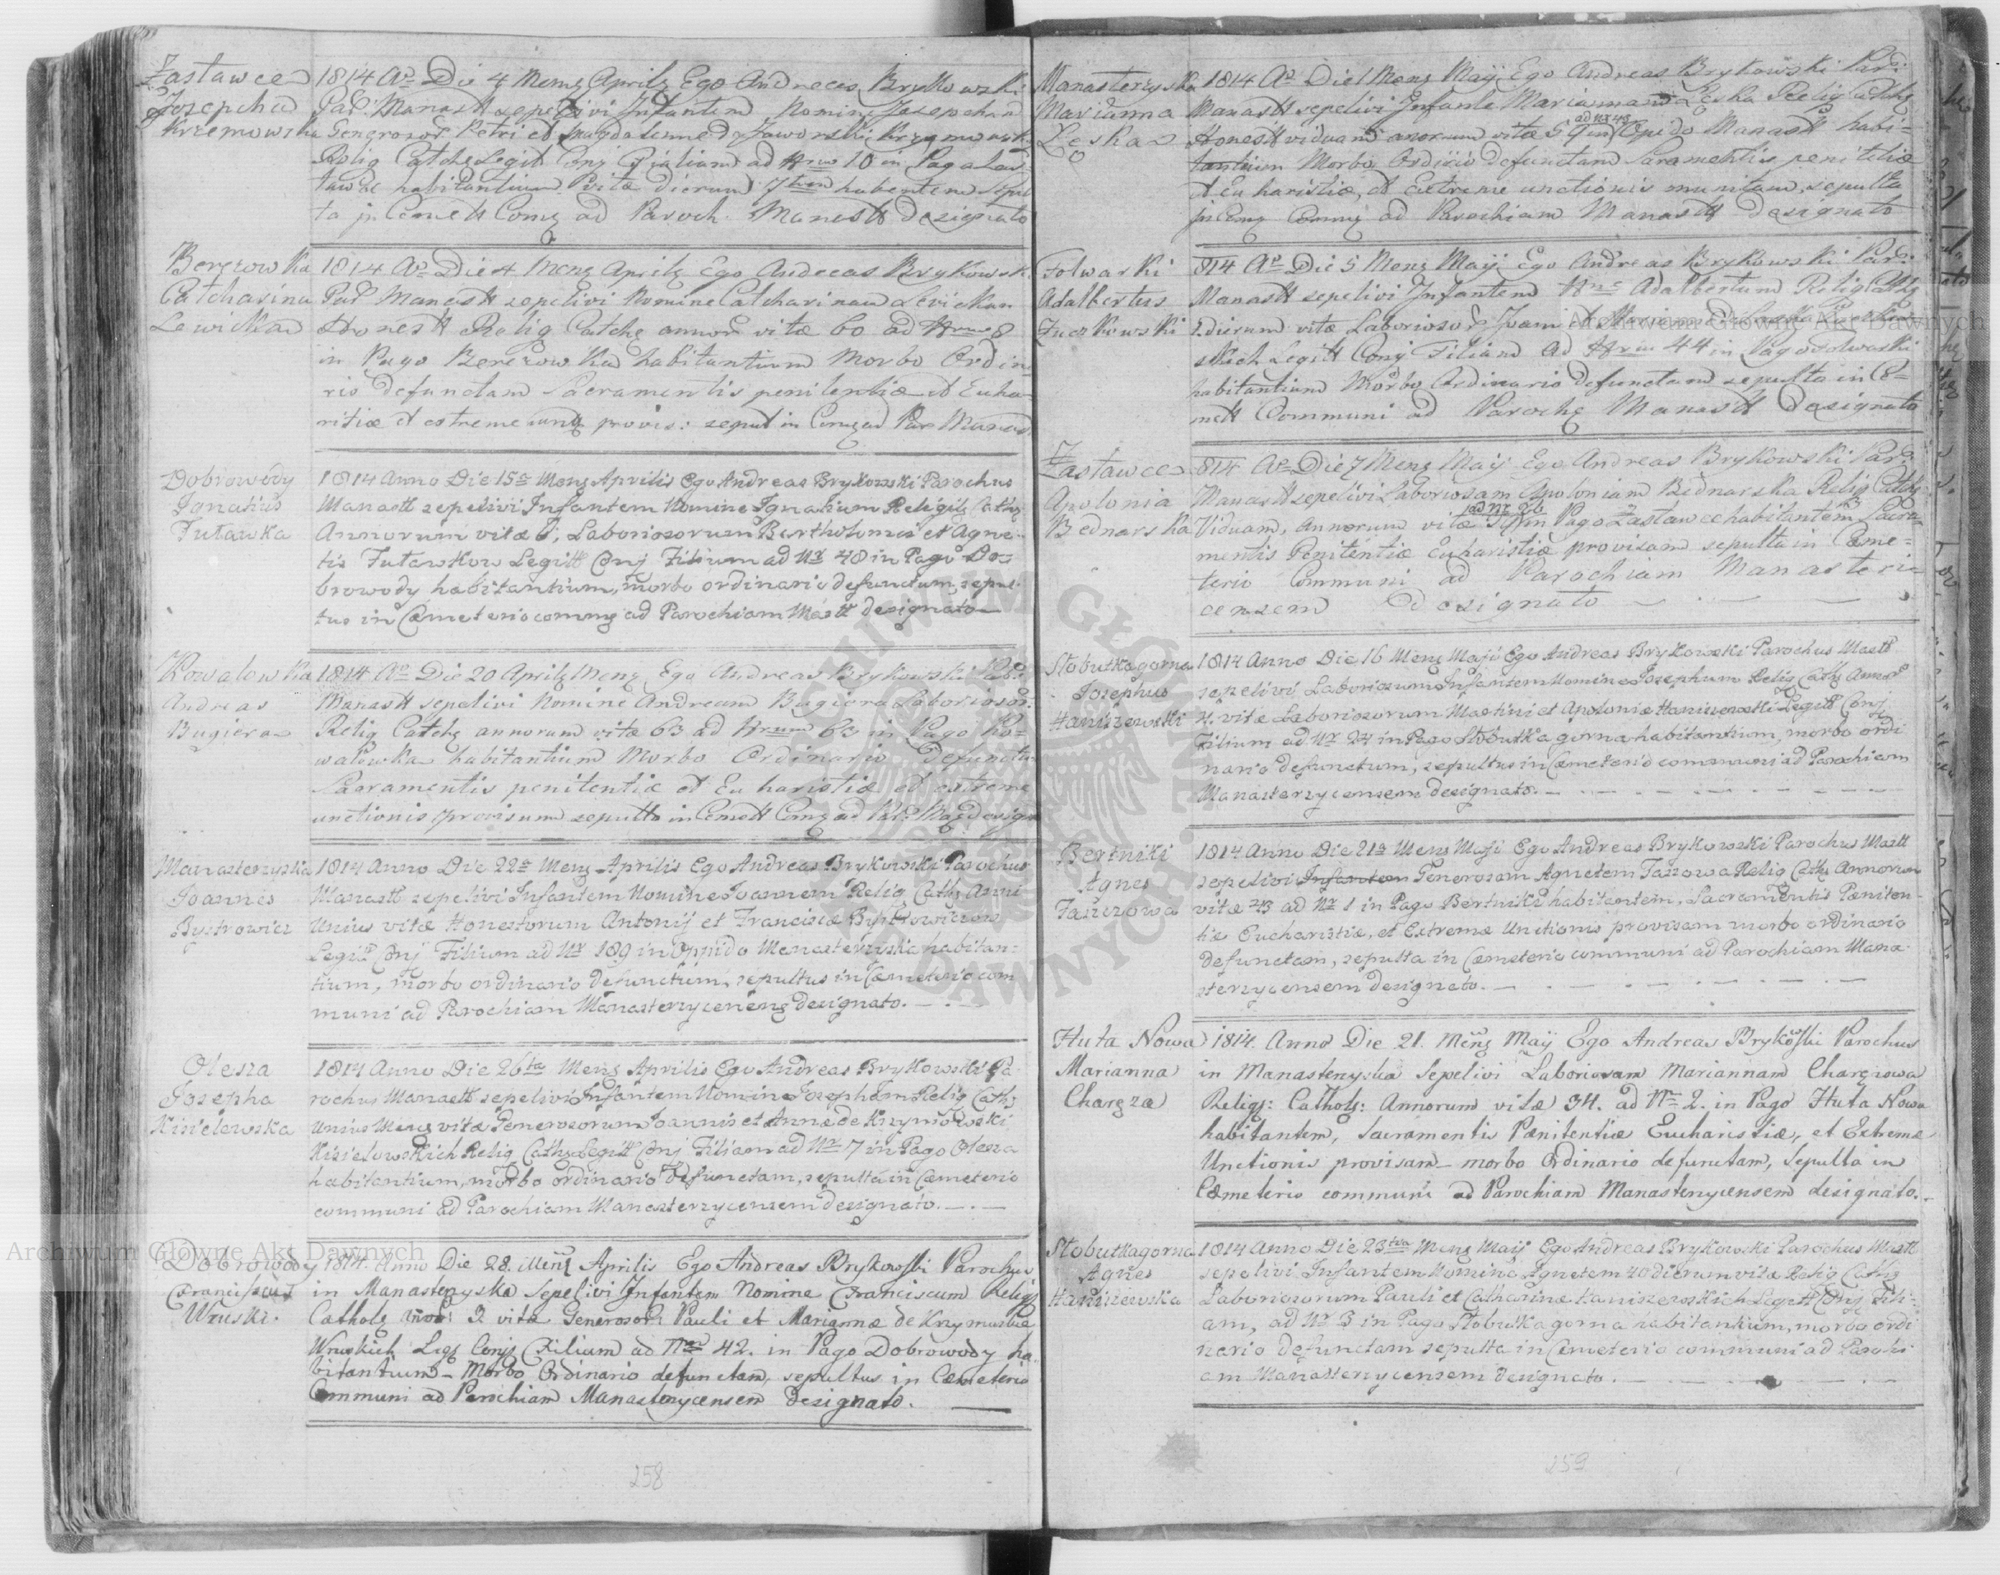 Zastawce
Josepha
Krzemowska
1814 Ao Die 4 Mens Aprilis Ego Andreas Brykowski
Par: Manastt sepelivi Infantem Nomine Josepham
Generosor Petri et Magdalenne de Jaworski
Relig Cathc Legitt Conj Filiam ad Nrum 10 in Pago Zas
tawce habitantium vitæ dierum 7tem habentem sepul
ta in Cemett Comg ad Paroch Manastt designato
Berezowka
Catharina
Lewicka
1814 Ao Die 4 Mens Aprilis Ego Andreas Brykowski
Par Manastt sepelivi Nomine Catharinam Levickan
Honestt Relig Cathc annor vitæ 60 ad Nrum 8
in Pago Berezowka habitantium Morbo Ordina
rio defunctam Sacramentis penitentiæ et Eucha
ristiæ et extreme unctt provis: sepult in Comg ad Par Manast
Dobrowody
Ignatius
Tutawka
1814 Anno Die 15a Mens Aprilis Ego Andreas Brykowski Parochus
Manastt sepelivi Infantem Nomine Ignatium Religis Cathc
Annorum vitæ 6, Laboriosorum Bartholomei et Agne-
tis Tutawkow Legitt Conj Filium ad Nr 48 in Pago Do-
browody habitantium, morbo ordinario defunctum, sepul-
tus in Cæmeterio commg ad Parochiam Mastt designato
Kowalowka
Andreas
Bugiera
1814 Ao Die 20 Aprilis Mens Ego Andreas Brykowski Par:
Manastt sepelivi Nomine Andream Bugiera Laboriosor
Relig Cathc annorum vitæ 63 ad Nrum 63 in Pago Ko-
walowka habitantium Morbo Ordinario defunctu
Sacramentis penitentiæ et Eucharistiæ et extreme
unctionis provisum sepultt in Cemett Comg ad Par: Mag design
Manasterzyska
Joannes
Bystrowicz
1814 Anno Die 22a Mens Aprilis Ego Andreas Brykowski Parochus
Manastt sepelivi Infantem Nomine Joannem Relig Cathc Anni
Unius vitæ Honestorum Antonij et Franciscæ Bystrowiczow
Legitt Conj Filium ad Nr 189 in Oppido Manasterzyska habitan-
tium, morbo ordinario defunctum, sepultus in Cæmeterio com
muni ad Parochiam Manasterzycensg designato.
Olesza
Josepha
Kisielewska
1814 Anno Die 26ta Mens Aprilis Ego Andreas Brykowski Pa-
rochus Manastt sepelivi Infantem Nomine Josepham Relig Cathc
Unius Mens vitæ Generosorum Joannis et Annæ de Krzymowski
Kisielowskich Relig Cathc Legitt Conj Filiam ad Nr 7 in Pago Olesza
habitantium, morbo ordinario defunctam, sepulta in Cæmeterio
communi ad Parochiam Manasterzycensem designato.
Dobrowody
Franciscus
Wruski.
1814. Anno Die 28. Mens Aprilis Ego Andreas Brykowski Parochus
in Manasterzyska Sepelivi Infantem Nomine Franciscum Religs
Catholg 3 vitæ Generosor Pauli et Mariannæ de Krzymuska
Wruskich Legs Conjs Filium ad Nro 42. in Pago Dobrowody ha-
bitantium Morbo Ordinario defunctum, sepultus in Cæmeterio
Communi ad Parochiam Manasterzycensem designato.
258
Manasterzyska
Marianna
Leska
1814 Ao Die 1 Mens Maij Ego Andreas Brykowski Par:
Manastt sepelivi Infante Marianna Leska Relig Cathc
ad Nr 43
Honestt viduam anorum vitæ 59 in Opido Manastt habi-
tantium Morbo Ordirio defunctam Saramentis penitetiæ
et Eucharistiæ, et Extreme unctionis munitam, sepulta
in Cemg Commg ad Parochiam Manastt designato
Folwarki
Adalbertus
Zuczkowski
814 Ao Die 5 Mens Maij Ego Andreas Brykowski Par:
Manastt sepelivi Infantem Nne Adalbertum Relig Cathc
dierum vitæ Laboriosor Joani et Marianna
skich Legitt Conj Filium ad Nrum 44 in Pago Folwarki
habitantium Morbo Ordinario defunctum sepulta in Ce-
mett Communi ad Parochg Manastt designato
Zastawce
Apolonia
Bednarska
814 Ao Die 7 Mens Maij Ego Andreas Brykowski Par
Manastt sepelivi Laboriosam Apoloniam Bednarska Relig Cathc
ad Nr 26
Viduam, Annorum vitæ in Pago Zastawce habitantem Sacra-
mentis Penitentiæ Eucharistiæ provisam sepulta in Cæme-
terio Communi ad Parochiam Manasteri-
censem designato
Slobutkagorna
Josephus
Haniszewski
1814 Anno Die 16 Mens Maji Ego Andreas Brykowski Parochus Mastt
sepelivi Laboriosum Infantem Nomine Josephum Relig Cathc Annor
4. vitæ Laboriosorum Martini et Apoloniæ Haniszewski Legitt Conj
Filium ad Nr 24 in Pago Slobutka gorna habitantium, morbo ordi
nario defunctum, sepultus in Cæmeterio communi ad Parochiam
Manasterzycensem designato.
Bertniki
Agnes
Taszowa
1814 Anno Die 21a Mens Maji Ego Andreas Brykowski Parochus Mastt
sepelivi Infantem Generosam Agnetem Taszowa Relig Cathc Annorum
vitæ 73 ad Nr 1 in Pago Bertniki habitantem, Sacramentis Pæniten-
tiæ Eucharistiæ, et Extremæ Unctionis provisam morbo ordinario
defunctam, sepulta in Cæmeterio communi ad Parochiam Mana-
sterzycensem designato.
Huta Nowa
Marianna
Charęza
1814. Anno Die 21. Mens Maij Ego Andreas Brykowski Parochus
in Manasterzyska Sepelivi Laboriosam Mariannam Charęzowa
Religs: Catholg: Annorum vitæ 34. ad Nro 2. in Pago Huta Nowa
habitantem, Sacramentis Pænitentiæ Eucharistiæ, et Extremæ
Unctionis provisam morbo Ordinario defunctam, Sepulta in
Cæmeterio communi ad Parochiam Manasterzycensem designato.
Slobutkagorna
Agnes
Haniszewska
1814 Anno Die 23tia Mens Maij Ego Andreas Brykowski Parochus Mastt
sepelivi Infantem Nomine Agnetem 40 dierum vitæ Relig Cathc
Laboriosorum Pauli et Catharinæ Haniszewskich Legitt Conj Fili-
am, ad Nr 3 in Pago Slobutka gorna habitantium, morbo ordi
nario defunctam sepulta in Cæmeterio communi ad Parochi
am Manasterzycensem designato.
259
Archiwum Główne Akt Dawnych
Archiwum Główne Akt Dawnych
ARCHIWUM GŁÓWNE AKT DAWNYCH